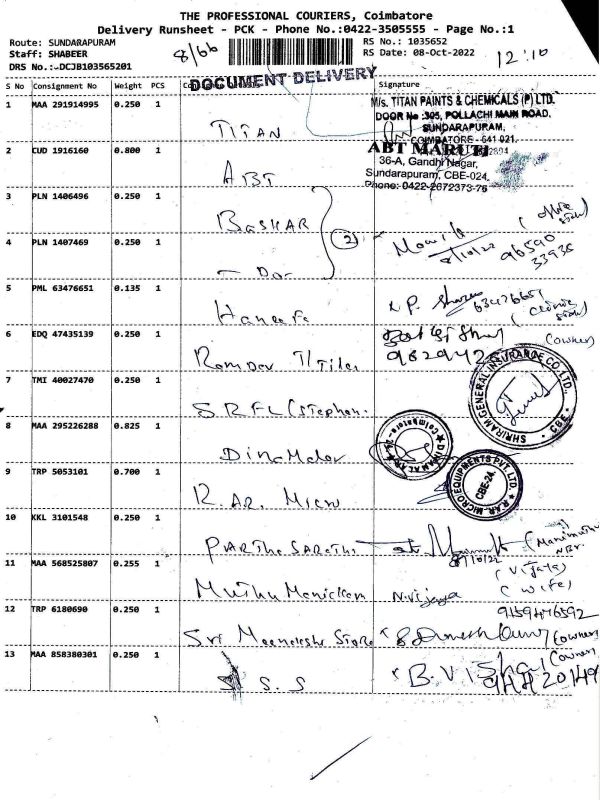 THE PROFESSIONAL COURIERS, Coimbatore
Delivery Runsheet - PCK - Phone No.:0422-3505555 - Page No.:1
Route: SUNDARAPURAM
Staff: SHABEER
DRS No.:-DCJB103565201
8/66
RS No.: 1035652
RS Date: 08-Oct-2022
12:10
DOCUMENT DELIVERY
S No Consignment No Weight PCS Signature
1 MAA 291914995 0.250 1 TITAN
M/s. TITAN PAINTS & CHEMICALS (P) LTD.
DOOR No : 305, POLLACHI MAIN ROAD,
SUNDARAPURAM,
COIMBATORE - 641 021.
2 CUD 1916160 0.800 1 ABT
ABT MARUTI
36-A, Gandhi Nagar,
Sundarapuram, CBE-024.
Phone: 0422-2672373-76
3 PLN 1406496 0.250 1 BASKAR
2
8/10/22
(Office
96590
33936
4 PLN 1407469 0.250 1 - Do -
5 PML 63476651 0.135 1 Haneefa
63476651
(Clinic
6 EDQ 47435139 0.250 1 Ramdev Tiles
(owner)
982942
7 TMI 40027470 0.250 1 SRFL (Stephan.
SHRIRAM GENERAL INSURANCE CO. LTD.,
CBE
8 MAA 295226288 0.825 1 Dinamalar
DINAMALAR
Coimbatore
9 TRP 5053101 0.700 1 R.AR. Micro
R.AR. MICRO EQUIPMENTS PVT. LTD.
CBE-24.
10 KKL 3101548 0.250 1 PARTHASARATHI
8/10/22
11 MAA 568525807 0.255 1 Muthu Manickam N.Vijaya
(Vijaya)
(wife)
12 TRP 6180690 0.250 1 Sri Meenakshi Store
9159476592
(owner)
13 MAA 858380301 0.250 1 S.S
B.Vishal (owner)